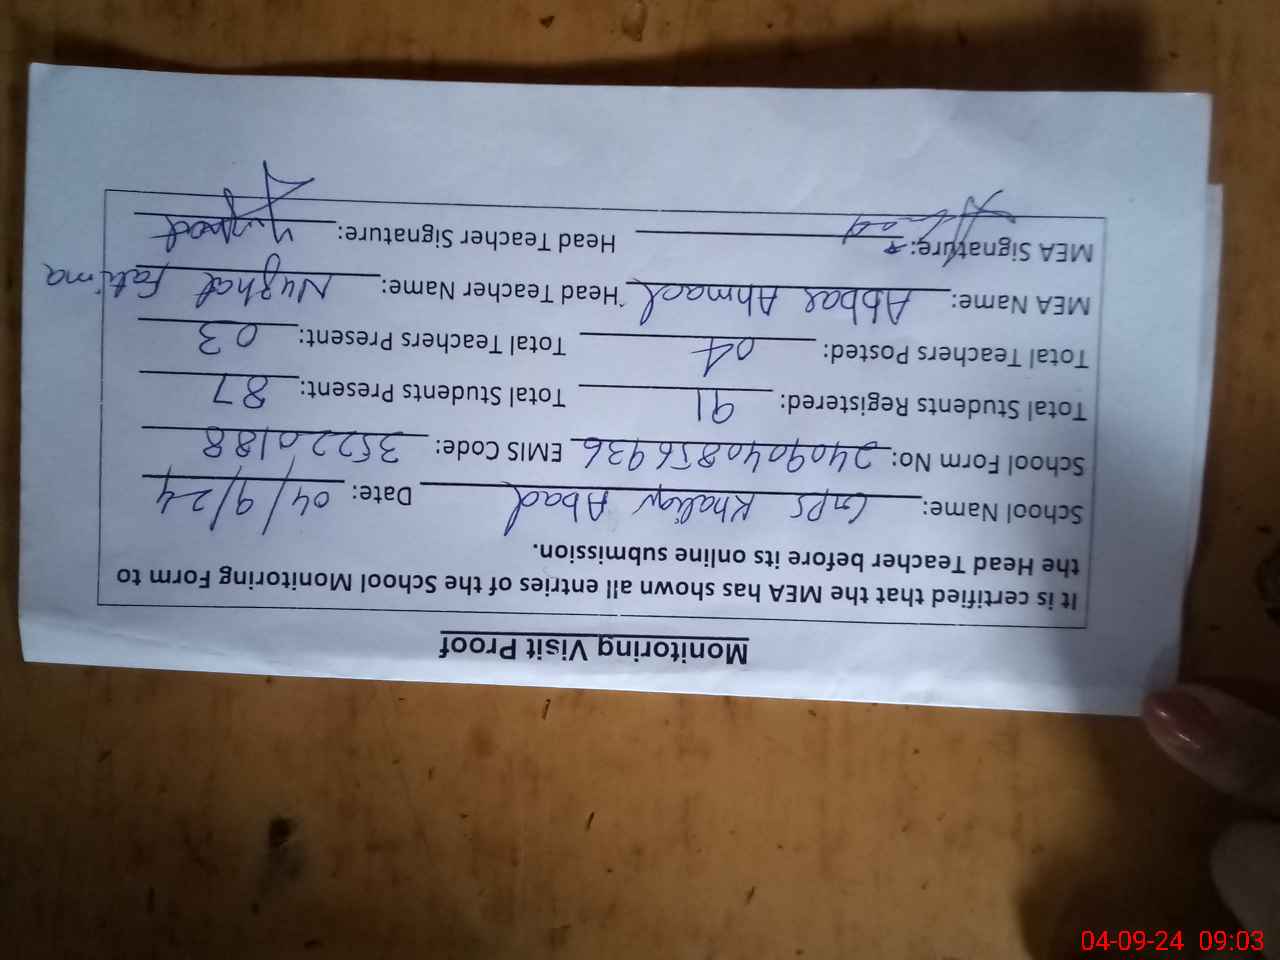 Monitoring Visit Proof
It is certified that the MEA has shown all entries of the School Monitoring Form to
the Head Teacher before its online submission.
School Name: GPS Khaliq Abad Date: 04/9/24
School Form No: 2409040856936 EMIS Code: 35220188
Total Students Registered: 91 Total Students Present: 87
Total Teachers Posted: 04 Total Teachers Present: 03
MEA Name: Ahmad Head Teacher Name: Nuzhat Fatima
MEA Signature: Head Teacher Signature:
04-09-24 09:03